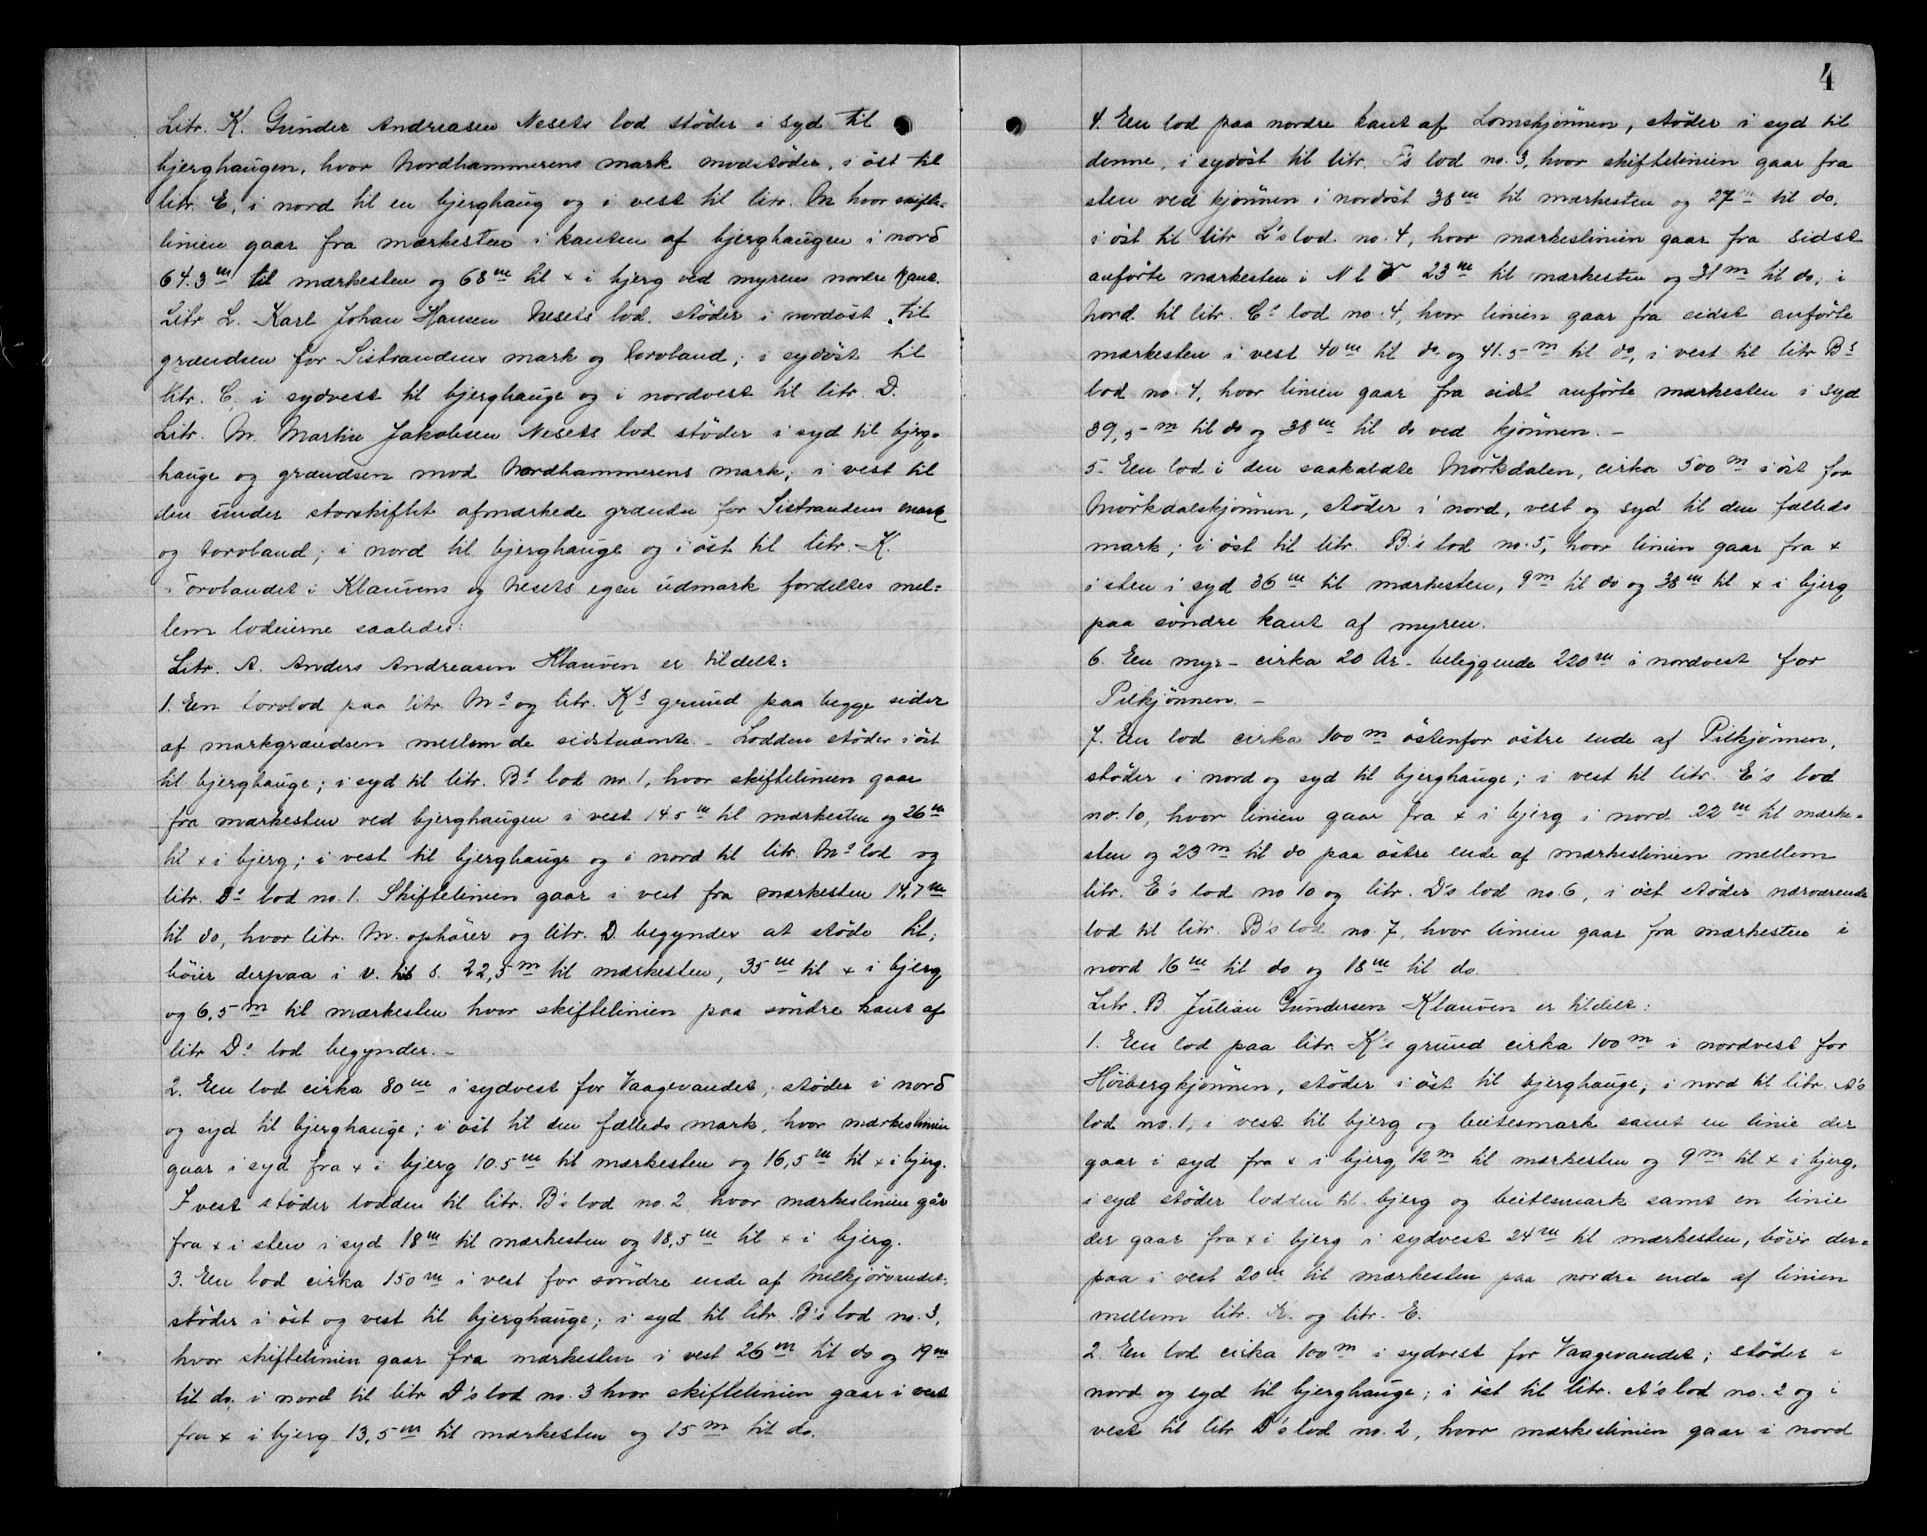 Litr. K. Gunder Andreasen Nesets lod stöder i syd til
bjerghaugen, hvor Nordhammerens mark modstöder, i öst til
litr. E, i nord til en bjerghaug og i vest til litr. M hvor skifte=
linien gaar fra mærkesten i kanten af bjerghaugen i nord
64.3 m til mærkesten og 68 m til x i bjerg ved myrens nordre kant.
Litr. L. Karl Johan Hansen Nesets lod. stöder i nordöst til
grændsen for Sistrandens mark og torvland; i sydöst til
litr. C, i sydvest til bjerghauge og i nordvest til litr. D.
Litr. M. Martin Jakobsen Nesets lod stöder i syd til bjerg=
hauge og grændsen mod Nordhammerens mark; i vest til
den under storskiftet afmærkede grændse for Sistrandens mark
og torvland; i nord til bjerghauge og i öst til litr. K.
Torvlandet i Klauvens og Nesets egen udmark fordeltes mel=
lem lodeierne saaledes:
Litr. A. Anders Andreasen Klauven er tildelt:
1. En torvlod paa litr. M's og litr. K's grund paa begge sider
af markgrændsen mellem de sidstnævnte. - Lodden stöder i öst
til bjerghauge; i syd til litr. B's lod nr. 1, hvor skiftelinien gaar
fra mærkesten ved bjerghaugen i vest 14.5 m til mærkesten og 26 m
til x i bjerg; i vest til bjerghauge og i nord til litr. M's lod og
litr. D's lod no. 1. Skiftelinien gaar i vest fra mærkesten 14,7 m
til do, hvor litr. M. ophörer og litr. D begynder at stöde til,
böier derpaa i v. til s. 22,5 m til mærkesten, 35 m til x i bjerg
og 6,5 m til mærkesten hvor skiftelinien paa söndre kant af
litr D's lod begynder. -
2. En lod cirka 80 m i sydvest for Vaagevandet, stöder i nord
og syd til bjerghauge; i öst til den fælleds mark, hvor mærkeslinien
gaar i syd fra x i bjerg 10.5 m til mærkesten og 16,5 m til x i bjerg.
I vest stöder lodden til litr. B's lod no. 2, hvor mærkeslinien går
fra x i sten i syd 18 m til mærkesten og 18,5 m til x i bjerg.
3. En lod cirka 150 m i vest for söndre ende af Melkjörvandet:
stöder i öst og vest til bjerghauge; i syd til litr. B's lod no. 3,
hvor skiftelinien gaar fra mærkesten i vest 26 m til do og 19 m
til do, i nord til litr D's lod no. 3 hvor skiftelinien gaar i vest
fra x i bjerg 13,5 m til mærkesten og 15 m til do.
4
4. En lod paa nordre kant af Lomskjönnen, stöder i syd til
denne, i sydöst til litr. F's lod no. 3, hvor skiftelinien gaar fra
sten ved kjönnen i nordöst 38 m til mærkesten og 27 m til do.
i öst til litr L's lod. no. 4, hvor mærkeslinien gaar fra sidst
anförte mærkesten i N t V 23 m til mærkesten og 31 m til do; i
Nord til litr. C's lod no. 4, hvor linien gaar fra sidst anförte
mærkesten i vest 40 m til do. og 41.5 m til do, i vest til litr B's
lod no. 4, hvor linien gaar fra sidst anförte mærkesten i syd
39,5 m til do og 38 m til do ved kjönnen. -
5. En lod i den saakaldte Mörkdalen, cirka 500 m i öst for
Mörkdalskjönnen, stöder i nord, vest og syd til den fælleds
mark; i öst til litr. B's lod no. 5, hvor linien gaar fra x
i sten i syd 36 m til mærkesten, 9 m til do og 38 m til x i bjerg
paa söndre kant af myren.
6. En myr - cirka 20 Ar - beliggende 220 m i nordvest for
Pilkjönnen. -
7. En lod cirka 100 m östenfor östre ende af Pilkjönnen,
stöder i nord og syd til bjerghauge; i vest til litr. E's lod
no. 10, hvor linien gaar fra x i bjerg i nord 22 m til mærke=
sten og 23 m til do paa östre ende af mærkeslinien mellem
litr. E's lod no 10 og litr. D's lod no. 6, i öst stöder nærværende
lod til litr. B's lod no. 7, hvor linien gaar fra mærkesten i
nord 16 m til do og 18 m til do.
Litr. B Julian Gundersen Klauven er tildelt:
1. En lod paa litr. K's grund cirka 100 m i nordvest for
Höibergkjönnen, stöder i öst til bjerghauge; i nord til litr. A's
lod no. 1, i vest til bjerg og beitesmark samt en linie der
gaar i syd fra x i bjerg 12 m til mærkesten og 9 m til x i bjerg.
i syd stöder lodden til bjerg og beitesmark samt en linie
der gaar fra x i bjerg i sydvest 24 m til mærkesten, böier der=
paa i vest 20 m til mærkesten paa nordre ende af linien
mellem litr. K. og litr. E.
2. En lod cirka 100 m i sydvest for Vaagevandet; stöder i
nord og syd til bjerghauge; i öst til litr. A's lod no. 2 og i
vest til litr D's lod no. 2, hvor mærkeslinien gaar i nord